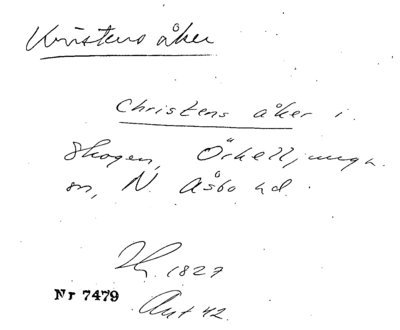 Kristens åker
Christens åker i
Skogen, Örkelljunga
sn, N. Åsbo hd.
1827
Nr 7479
Ant 42.